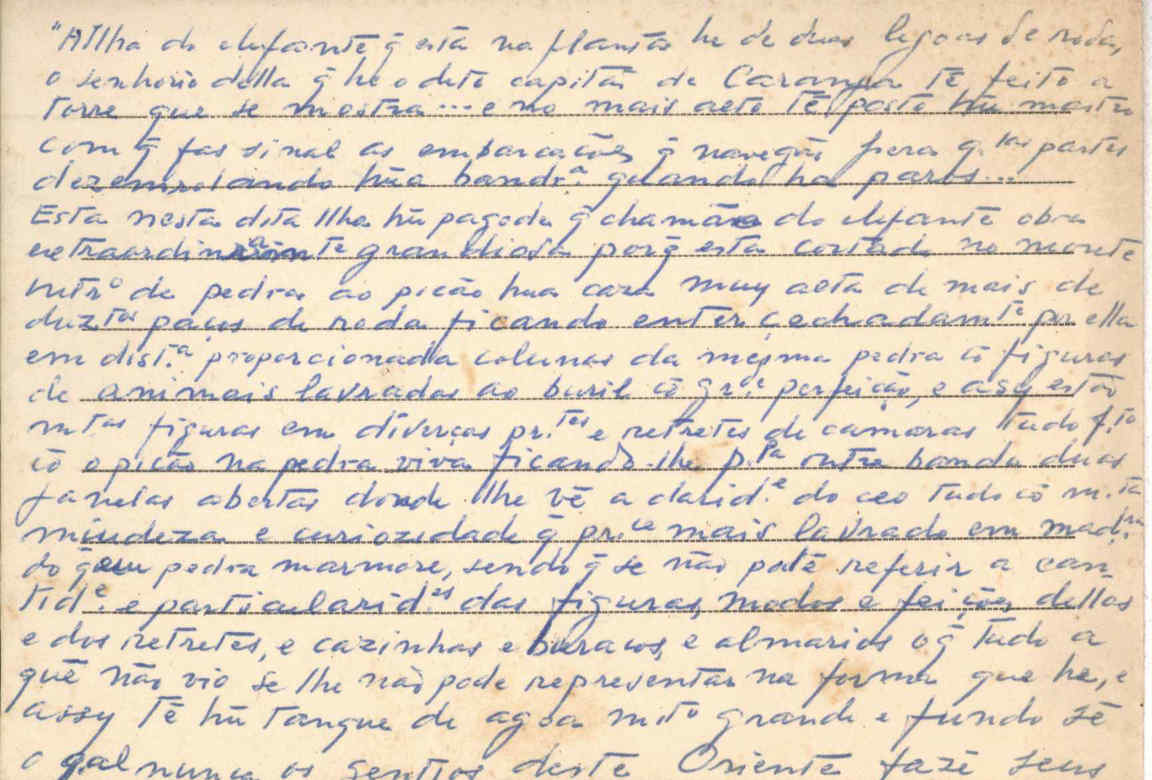 "A Ilha do elefante q̃ está na planta he de duas legoas de roda,
o senhorio della q̃ he o dito capitão de Caranja tẽ feito a
torre que se mostra... e no mais alto tẽ posto hũ mastro
com q̃ fas sinal as embarcações q̃ navegão pera q.tas partes
dezenrolando hũa band.ra quando ha paros...
Esta nesta dita Ilha hũ pagode q̃ chamão do elefante obra
extraordin.te grandiosa porq̃ está cortado no monte
intr.o de pedra ao picão hua caza muy alta de mais de
duz.tos paços de roda ficando entercechadam.te por ella
em dist.a proporcionada colunas da mesma pedra cõ figuras
de animais lavrados ao buril cõ gr.e perfeição, e assy estão
m.tas figuras em diverças pr.tes e retretes de camaras tudo f.to
cõ o picão na pedra viva ficando-lhe p.a outra banda duas
janelas abertas donde lhe vẽ a clarid.e do ceo tudo cõ m.ta
miudeza e curiozidade q̃ pr.ce mais lavrado em mad.ra
do q̃ em pedra marmore, sendo q̃ se não pode referir a can
tid.e e particularid.es das figuras, modos e feições dellas
e dos retretes, e cazinhas e buracos e almarios o q̃ tudo a
quẽ não vio se lhe não pode representar na forma que he, e
assy tẽ hũ tanque de agoa m.to grande e fundo sẽ
o qal nunca os gentios deste Oriente fazẽ seus